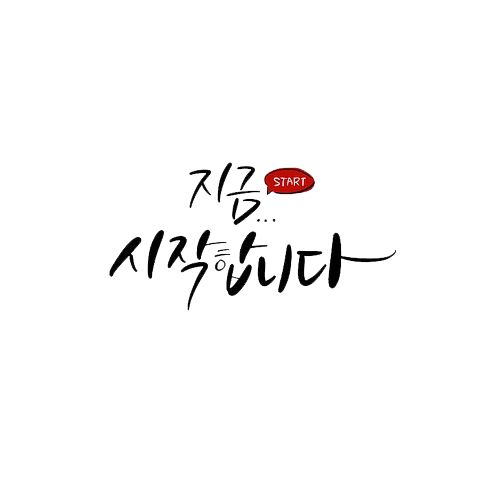 지금...
START
시작합니다